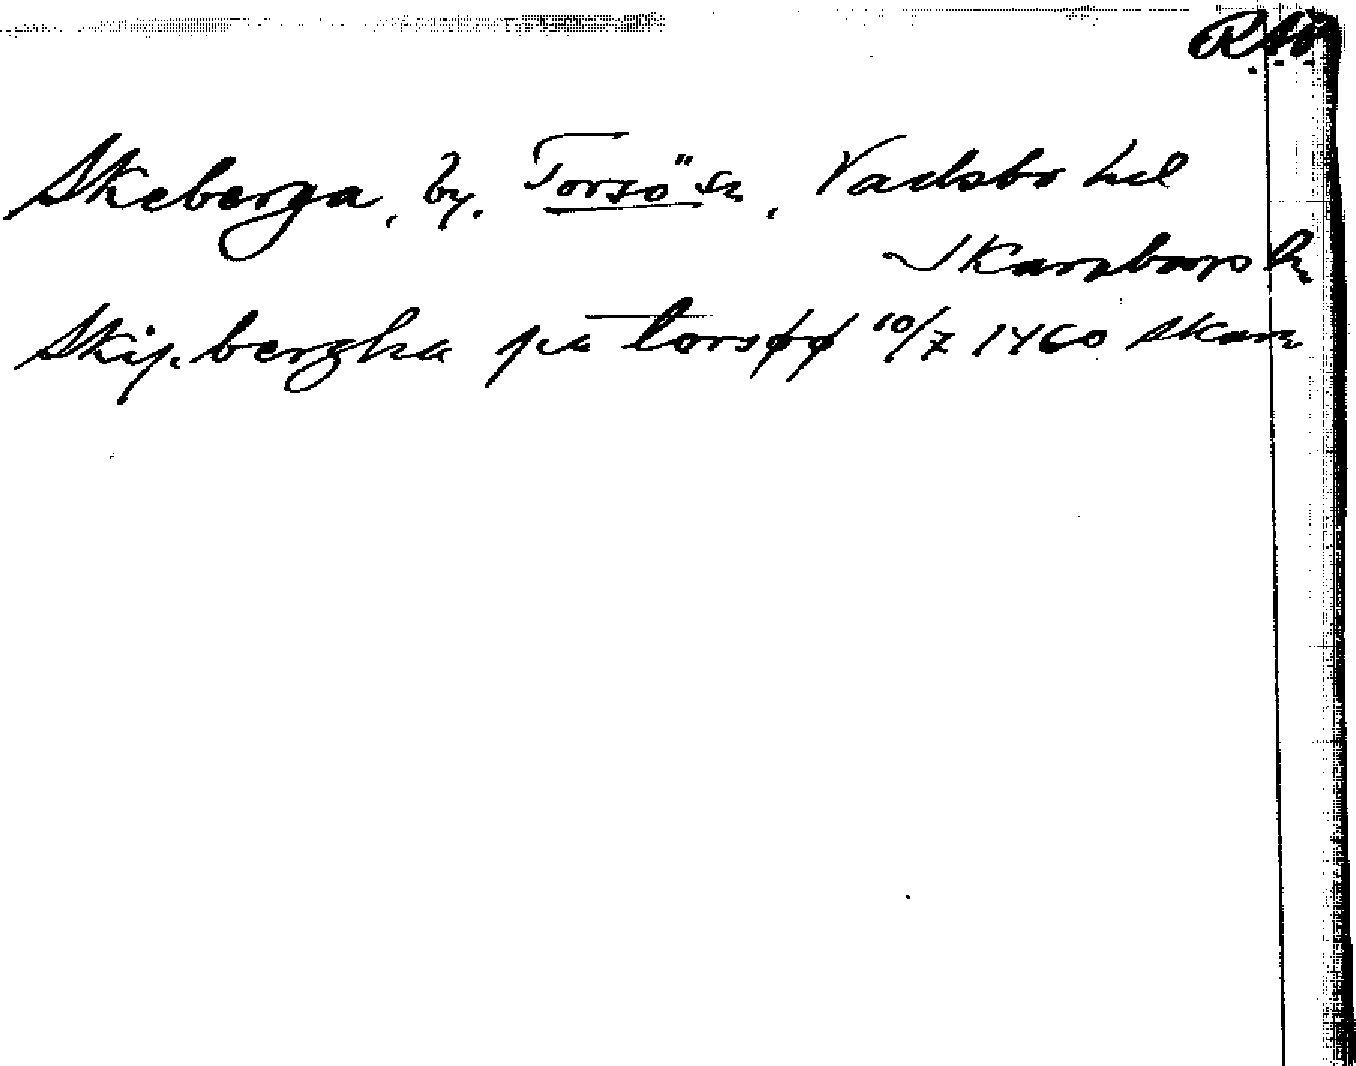 Skeberga, by. Torsö sn, Vadsbo hd
Skaraborgs l.
Skijebergha på torsøø 10/7 1460 Skara